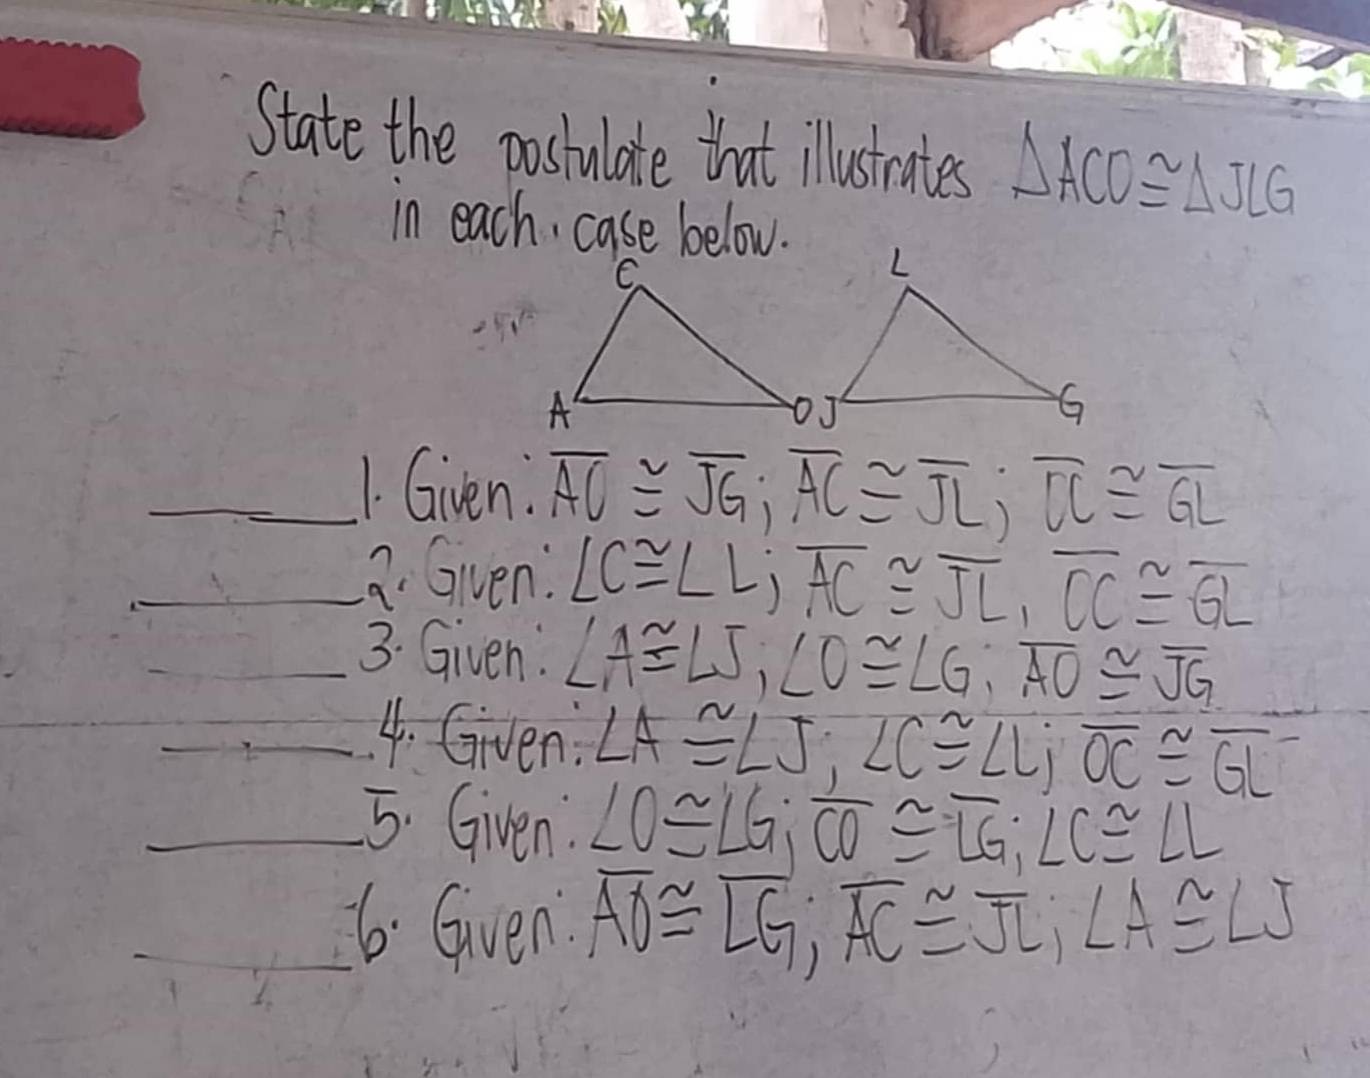 State the postulate that illustrates ΔACO≅ΔJLG
in each case below.
C L
A O J G
1. Given: A̅O̅ ≅ J̅G̅; A̅C̅ ≅ J̅L̅; O̅C̅ ≅ G̅L̅
2. Given: ∠C≅∠L; A̅C̅ ≅ J̅L̅, O̅C̅ ≅ G̅L̅
3. Given: ∠A≅∠J; ∠O≅∠G; A̅O̅ ≅ J̅G̅
4. Given: ∠A ≅∠J; ∠C≅∠L; O̅C̅ ≅ G̅L̅
5. Given: ∠O≅∠G; C̅O̅ ≅ L̅G̅; ∠C≅∠L
6. Given: A̅O̅≅ L̅G̅; A̅C̅ ≅ J̅L̅; ∠A ≅∠J